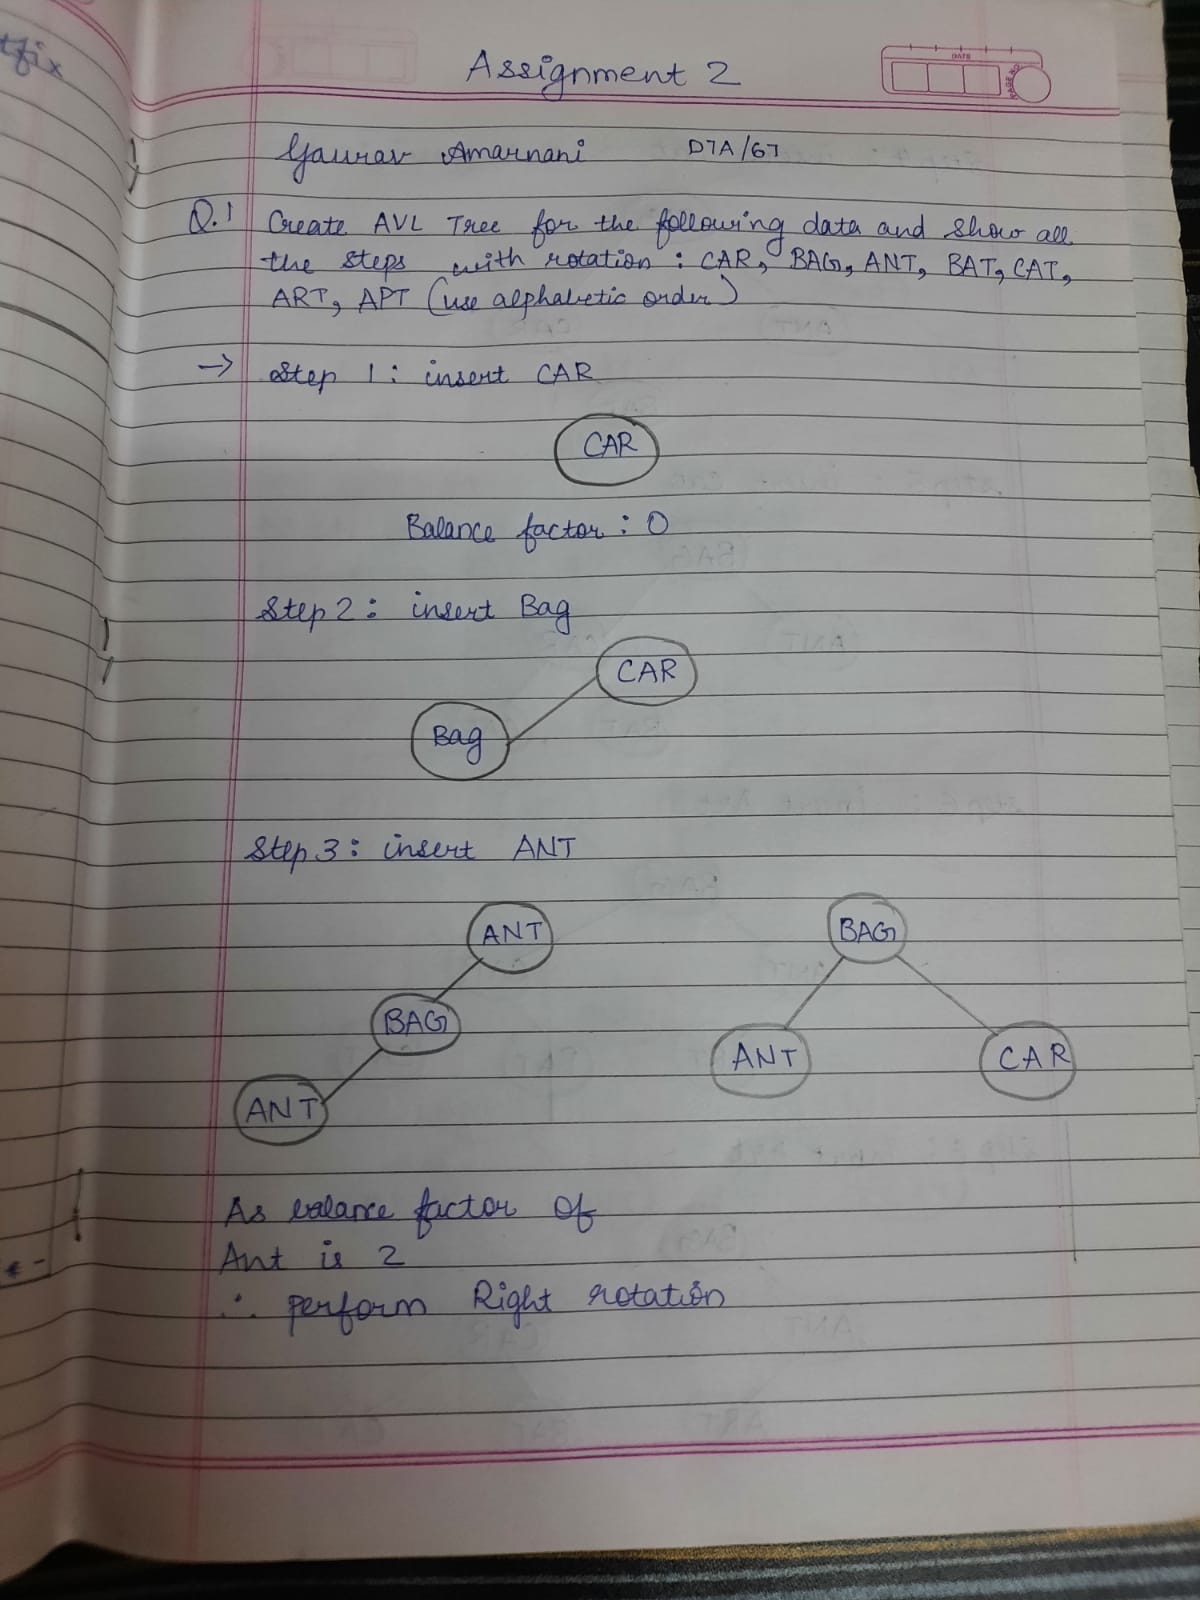 tfix
Assignment 2
DATE
PAGE NO.
Gaurav Amarnani D7A/67
Q.1 Create AVL Tree for the following data and show all
the steps with rotation : CAR, BAG, ANT, BAT, CAT,
ART, APT (use alphabetic order)
→ Step 1 : insert CAR
CAR
Balance factor : 0
Step 2 : insert Bag
CAR
Bag
Step 3 : insert ANT
ANT BAG
BAG
ANT CAR
ANT
As balance factor of
Ant is 2
∴ perform Right rotation